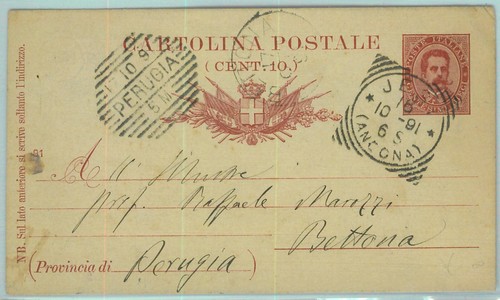 CARTOLINA POSTALE
(CENT. 10.)
POSTE ITALIANE
10 9
PERUGIA
5 M
JESI
18
10 - 91
6 S
(ANCONA)
91
All' Illustre
prof. Raffaele Marozzi
Bettona
(Provincia di Perugia)
NB. Sul lato anteriore si scrive soltanto l'indirizzo.